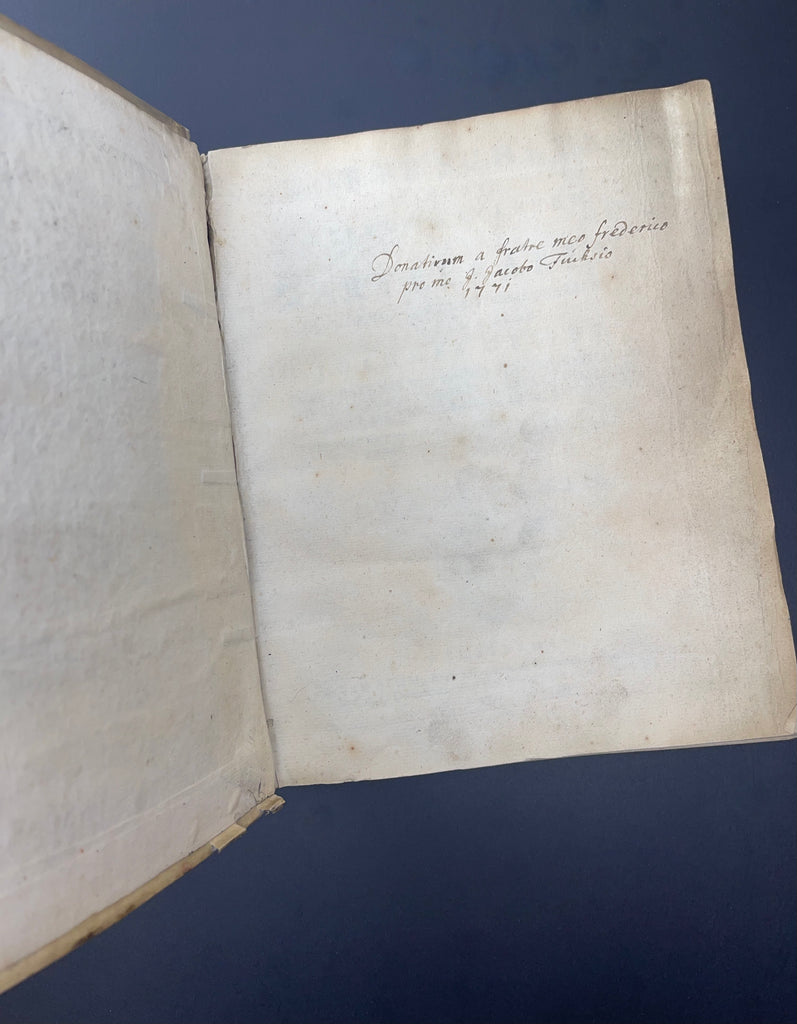 Donativum a fratre meo frederico
pro me J. Jacobo Fuchsio
1771